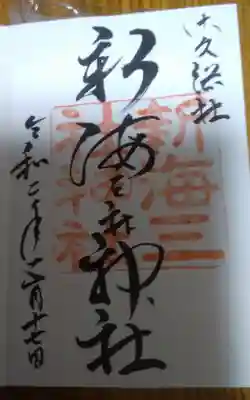 佐久総社
新海三社神社
新海三社神社
令和二年十一月十七日